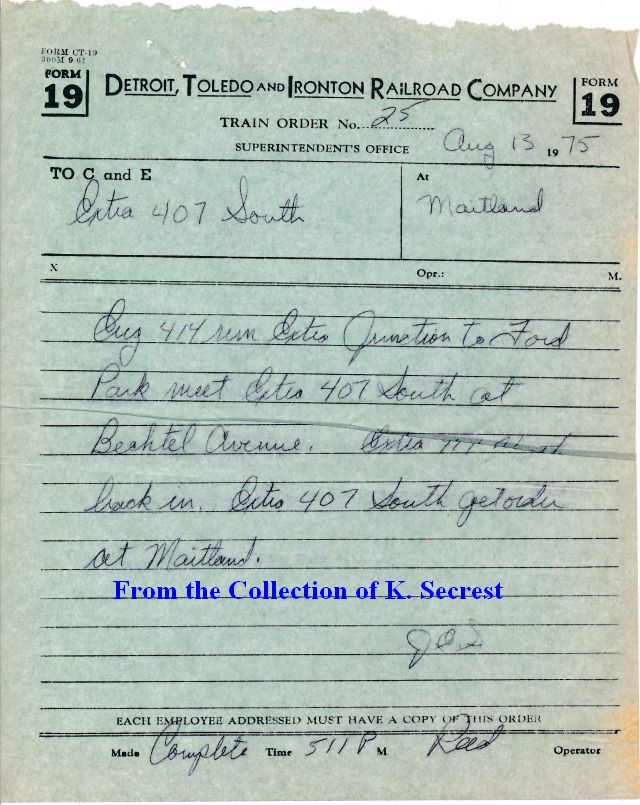 FORM CT-19
300M 9-61
FORM
19
DETROIT, TOLEDO AND IRONTON RAILROAD COMPANY
FORM
19
TRAIN ORDER No. 25
SUPERINTENDENT'S OFFICE Aug 13 1975
TO C and E
Extra 407 South
At
Maitland
X Opr.: M.
Eng 414 run Extra Junction to Ford
Park meet Extra 407 South at
Bechtel Avenue. Extra
back in. Extra 407 South get order
at Maitland.
From the Collection of K. Secrest
EACH EMPLOYEE ADDRESSED MUST HAVE A COPY OF THIS ORDER
Made Complete Time 511 P M Reed Operator